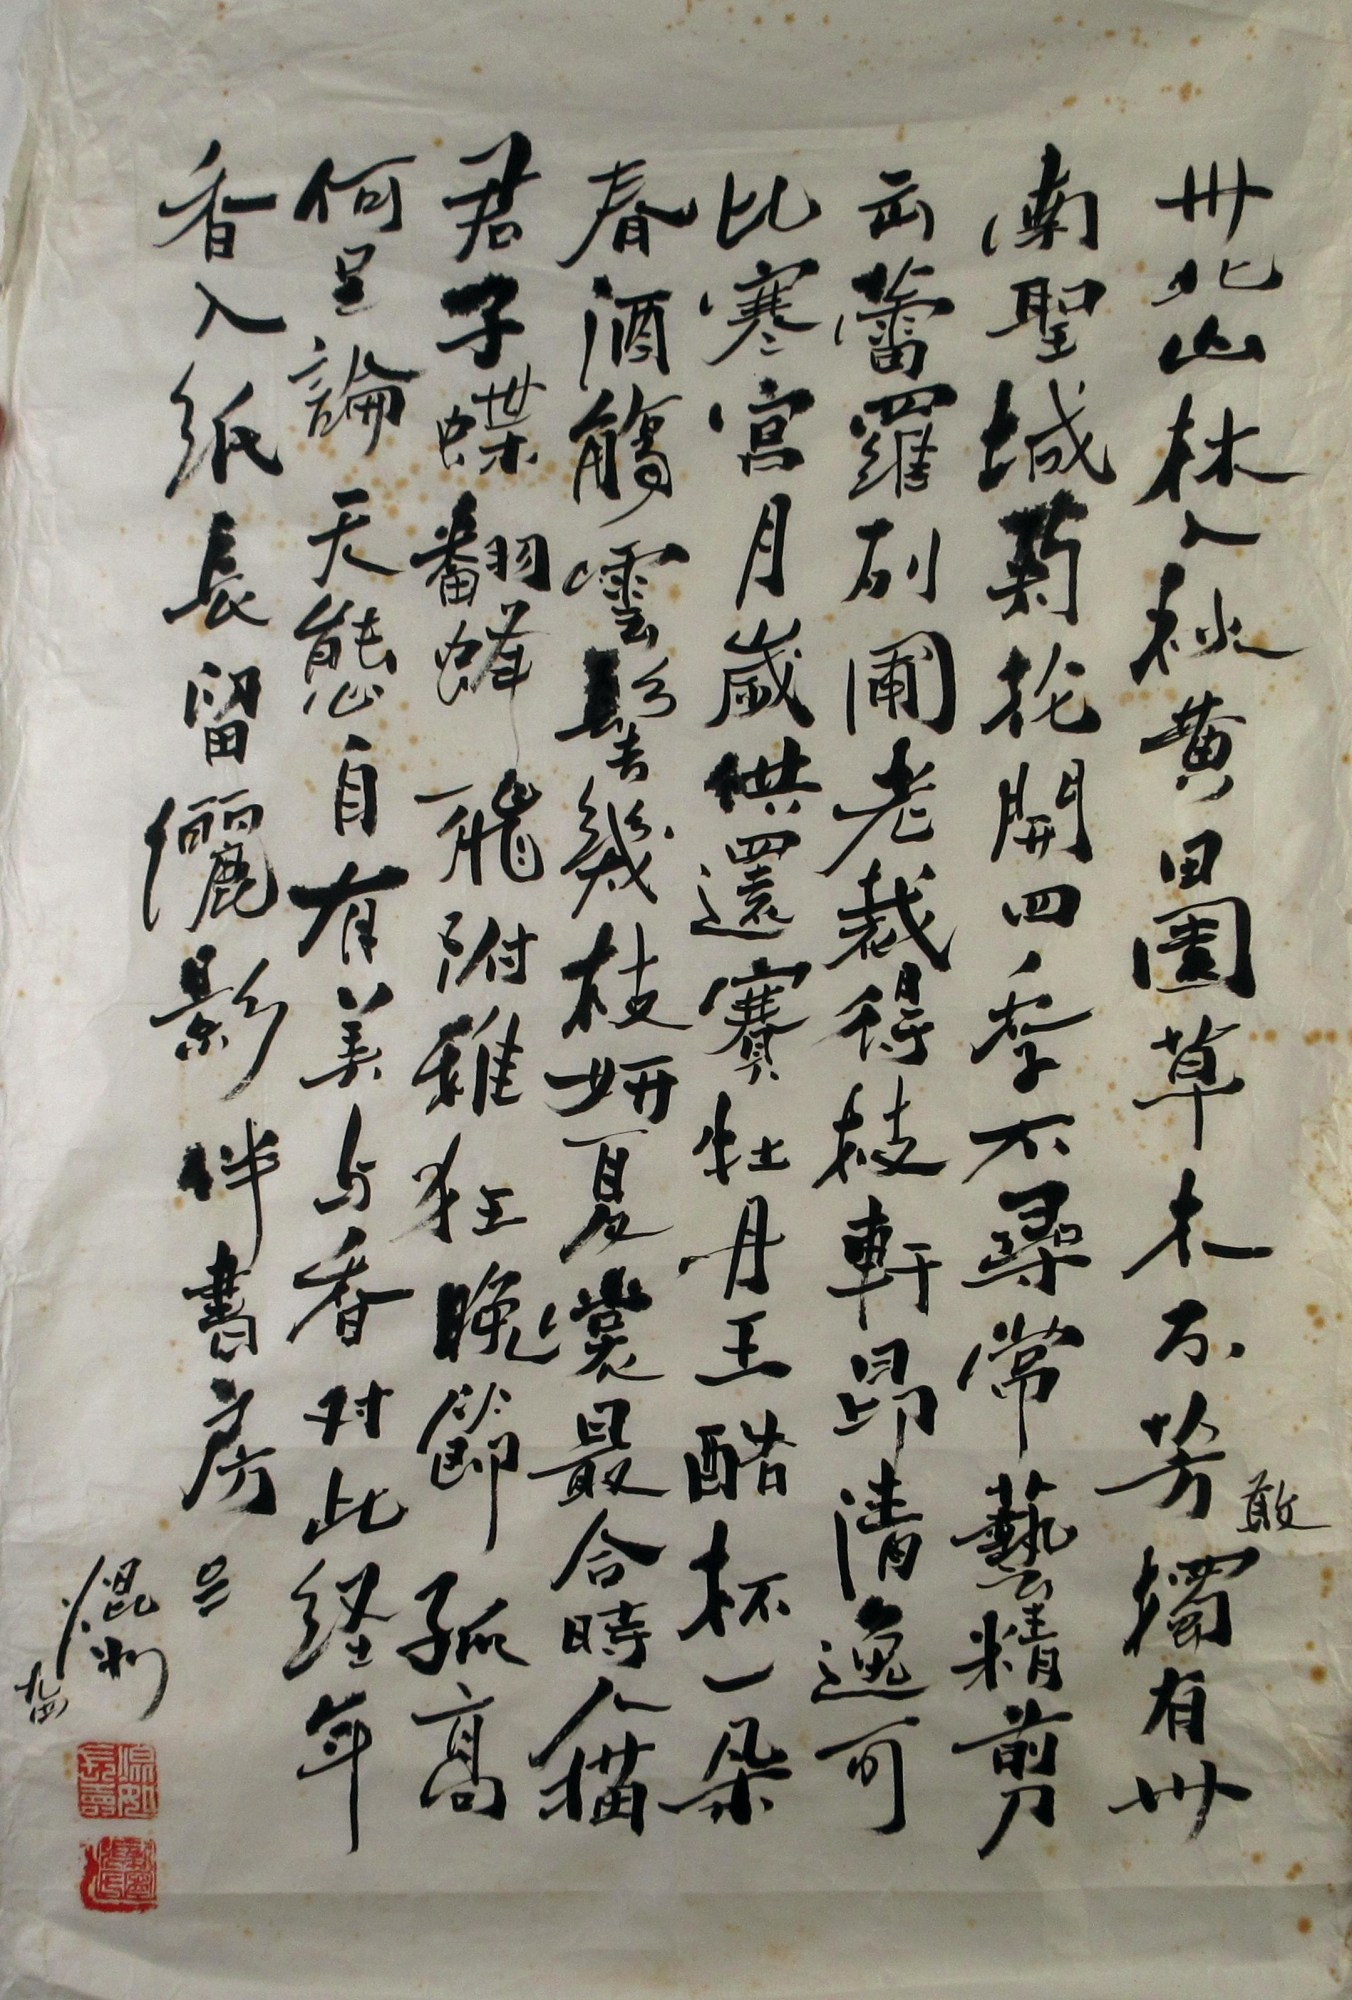 卅北山林入秋黄田園草木不芳獨有卅
敢
南聖城菊花開四季不尋常藝精剪
云蕾羅列圃老栽得枝軒昂清逸可
比寒宮月歲供還賽牡丹王酷杯一朵
春酒觴雲髻幾枝妍夏裳最合時人描
君子蝶翻蜂飛附雅狂晚節孤高
何足論天態自有美与香对此经年
香入紙長留儷影伴書房